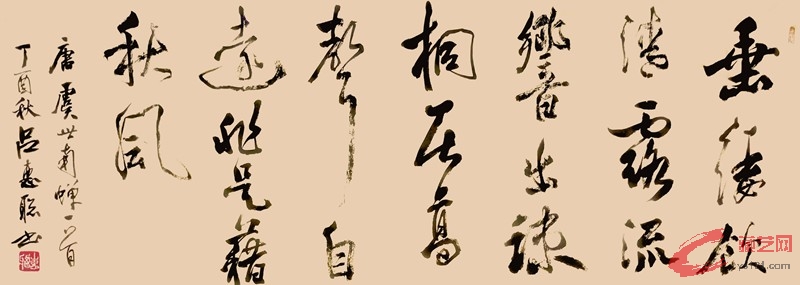 垂緌飲
清露流
響出疎
桐居高
聲自
遠非是藉
秋風
唐虞世南蝉一首
丁酉秋吕惠聪书